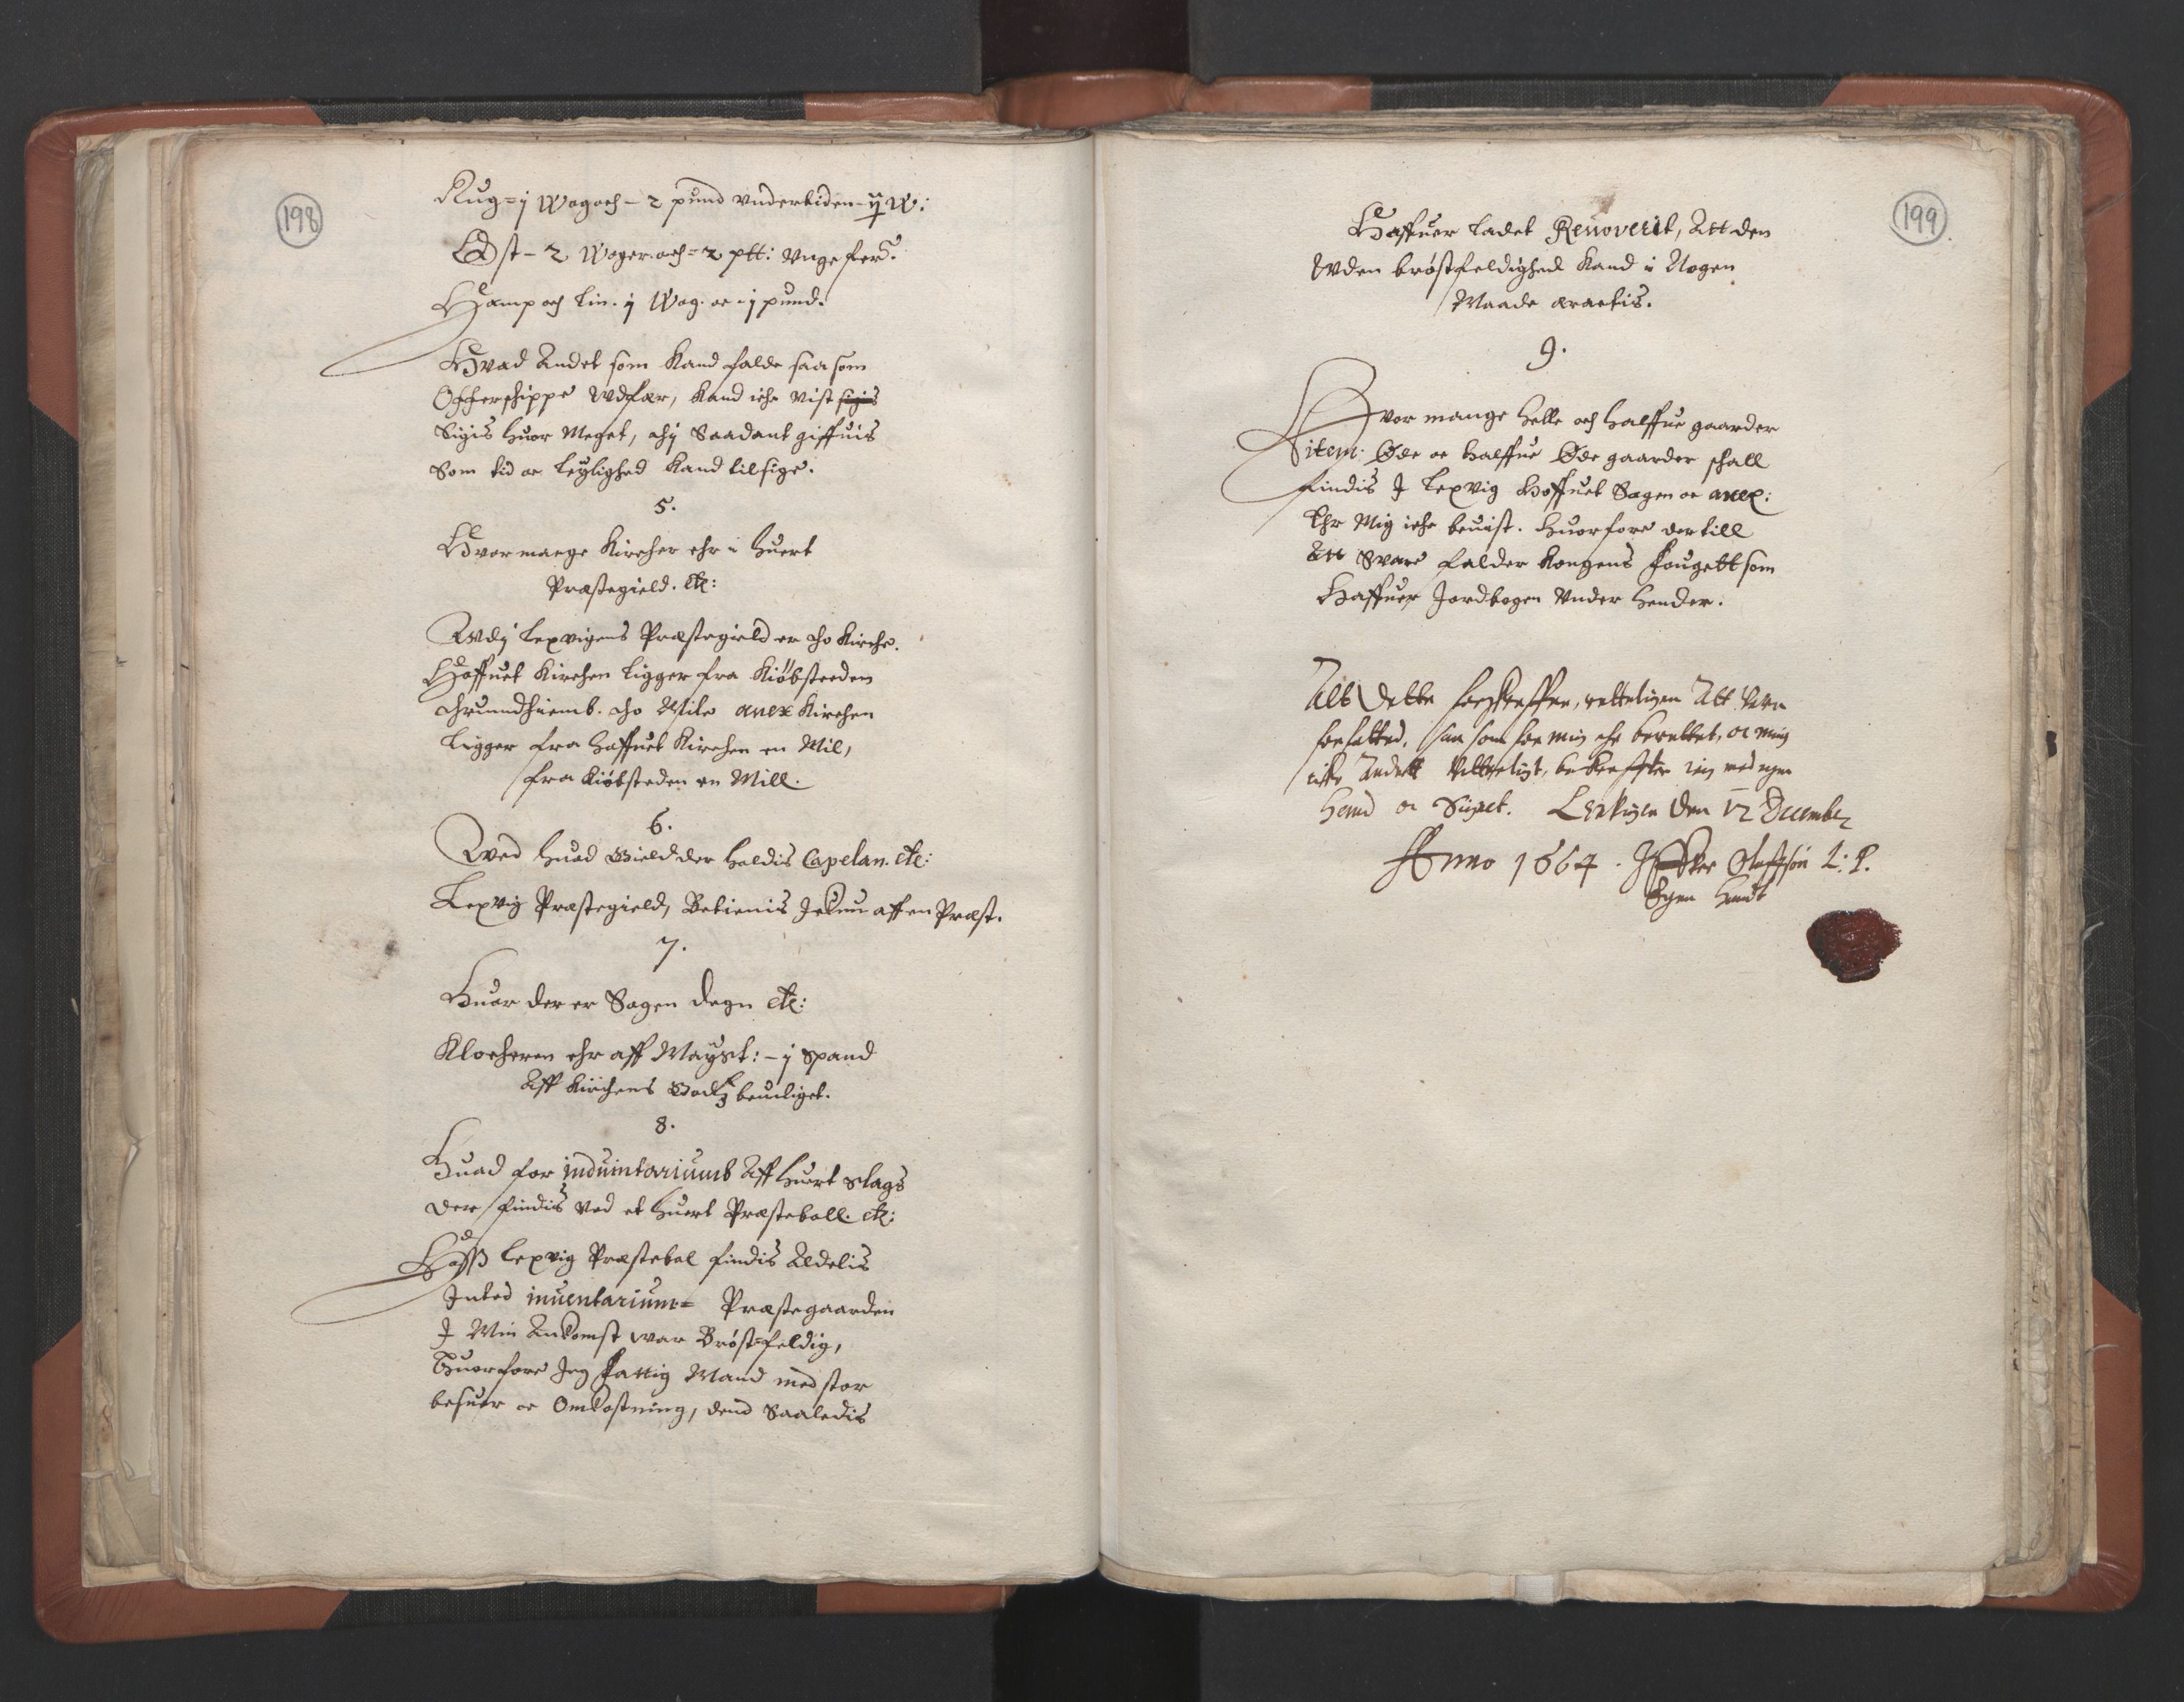 198
Rug = j Wog och - 2 pund vndertiden - ij W:
Ost - 2 Woger och = 2 ptt: Vngefer.
Hamp och Lin. j Wog. oc - j pund.
Hvad Andet som Kand falde saa som
Offer schippe Wdfær, Kand iche vist sigis
Sigis huor Meget, thj Saadant giffuis
Som tid oc Leylighed Kand tilsige.
5.
Hvor mange Kircher ehr i huert
Præstegield. etc:
Wdj Lexvigens Præstegield er tho Kirche.
Hoffuet Kirchen Ligger fra Kiøbsteeden
thrundhiemb. tho Mile anex Kirchen
Ligger fra Hoffuet Kirchen en Mil,
fra Kiøbsteden en Mill.
6.
Wed huad Gield der holdis Capelan. etc:
Lexvig Præstegield, Betienis Jckun aff en Præst.
7.
Huor der er Sogen Degn etc:
Klocheren ehr aff Mayst: - j Spand
Aff Kirchens Godtz beuiliget.
8.
Huad for induintariumb Aff huert slags
der findis ved et huert Præsteboll. etc:
Hoss Lexvig Præstebol findis Aldelis
Inted inuentarium = Præstegaarden
J Min Ankomst war Brøstfeldig,
Huorfore Jeg Fattig Mand med stor
besuer oc Omkostning, dend Saaledis
199
Haffuer ladet Renoverit, Att den
Wden brøstfeldighed Kand i Nogen
Maade eractis.
9.
Hvor mange Helle och halffue gaarder
item: Øde oc halffue Øde gaarder schall
findis J Lexvig Hoffuet Sogen oc anex:
Ehr Mig iche beuist. Huorfore der till
Att Svare falder Kongens Fougett som
Haffuer Jordbogen Vnder Hender.
Alt dette forschreffne, rettelligen Att være
forfatted, saa som for mig ehr berettet, oc mig
icke Andett vitterligt, bekreffter ieg med egen
Hand oc Signet. Lexvigen den 12 December
Anno 1664. Oluffsøn L: P.
Egen Handt